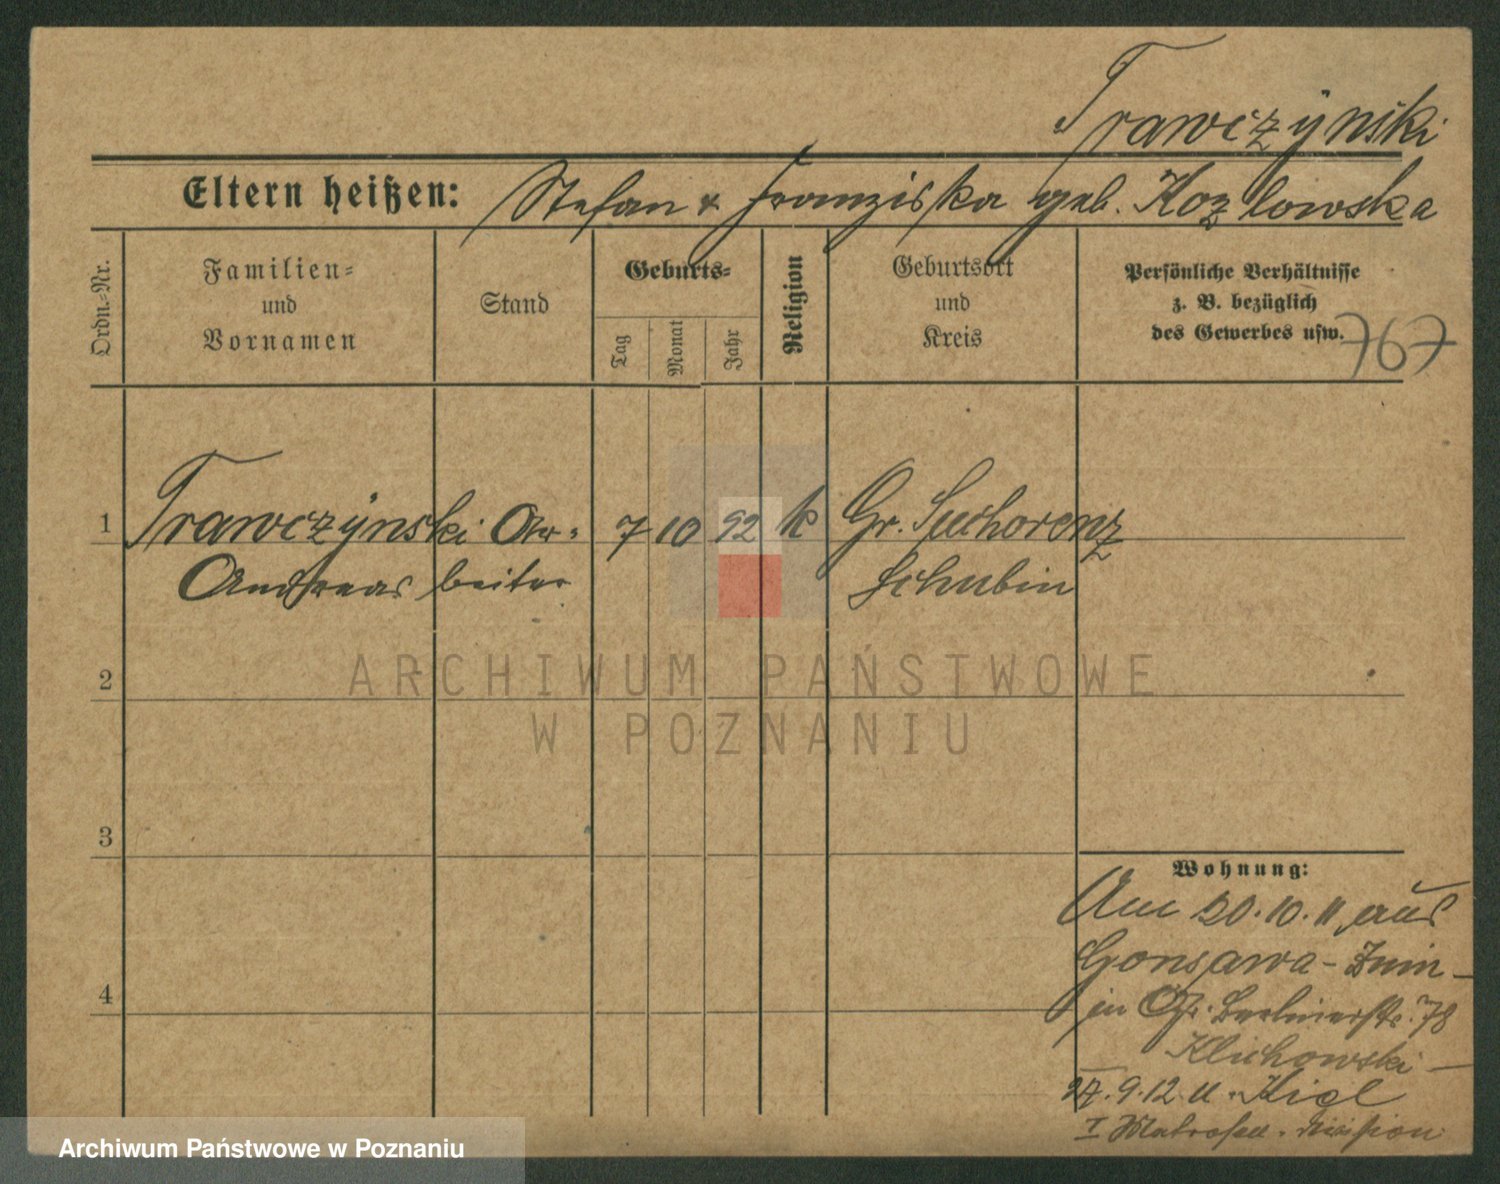 Trawczyński
Eltern heißen: Stefan & Franziska geb. Kozlowska
Ordn.-Nr.
Familien-
und
Vornamen
Stand
Geburts-
Tag
Monat
Jahr
Religion
Geburtsort
und
Kreis
Persönliche Verhältnisse
z. B. bezüglich
des Gewerbes usw.
767
1 Trawczyński Ar- 7 10 92 k Gr. Suchorenz
Andreas beiter Schubin
2
ARCHIWUM PAŃSTWOWE
W POZNANIU
3
Wohnung:
Am 20.10.11 aus
Gonsawa - Znin -
4
in Berlinerstr. 78
Klichowski -
27.9.12 n. Kiel
I Matrosen-Division
Archiwum Państwowe w Poznaniu